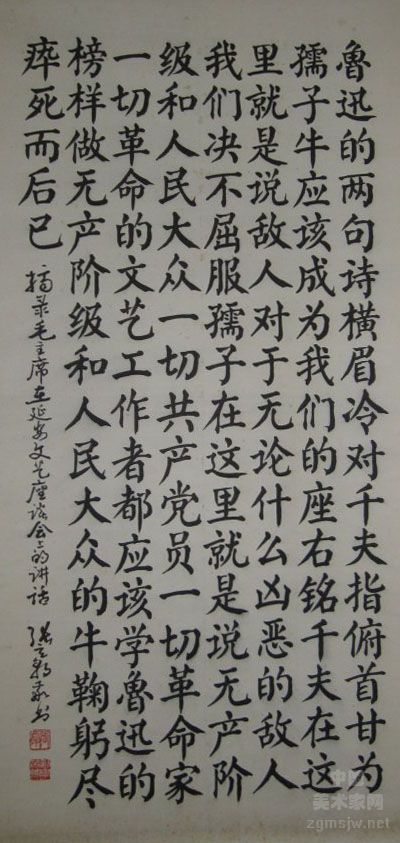 魯迅的两句诗横眉冷对千夫指俯首甘为
孺子牛应该成为我们的座右铭千夫在这
里就是说敌人对于无论什么凶恶的敌人
我们决不屈服孺子在这里就是说无产阶
级和人民大众一切共产党员一切革命家
一切革命的文艺工作者都应该学魯迅的
榜样做无产阶级和人民大众的牛鞠躬尽
瘁死而后已
摘录毛主席在延安文艺座谈会上的讲话
中国
美术家网
zgmsjw.net